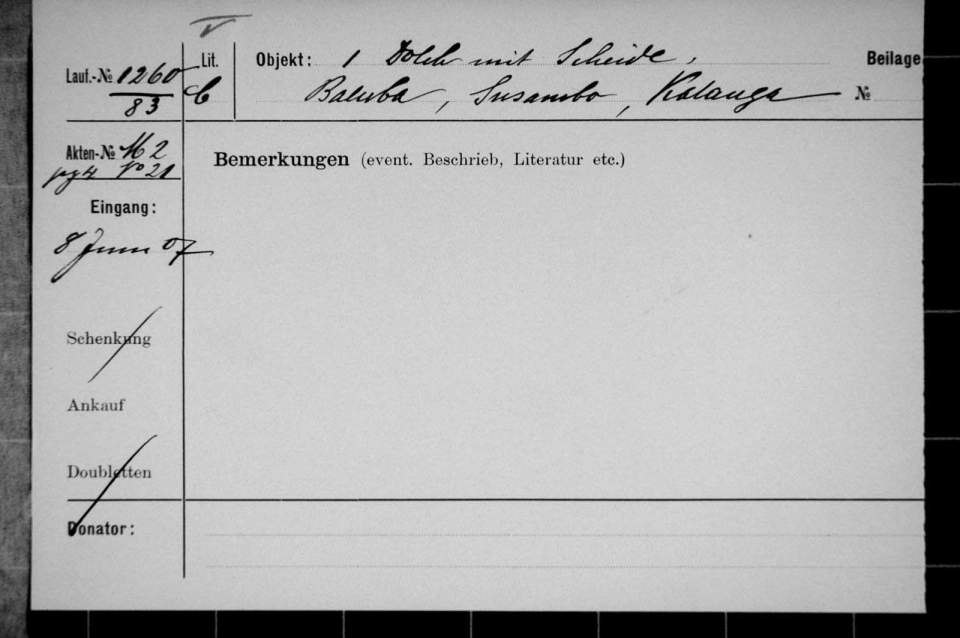 V
Lauf.-№ 1260
83
Lit.
C
Objekt: 1 Dolch mit Scheide,
Baluba, Susambo, Katanga
Beilage
№
Akten-№ M 2
pg 4 No 21
Bemerkungen (event. Beschrieb, Literatur etc.)
Eingang:
8 Juni 07
Schenkung
Ankauf
Doubletten
Donator: